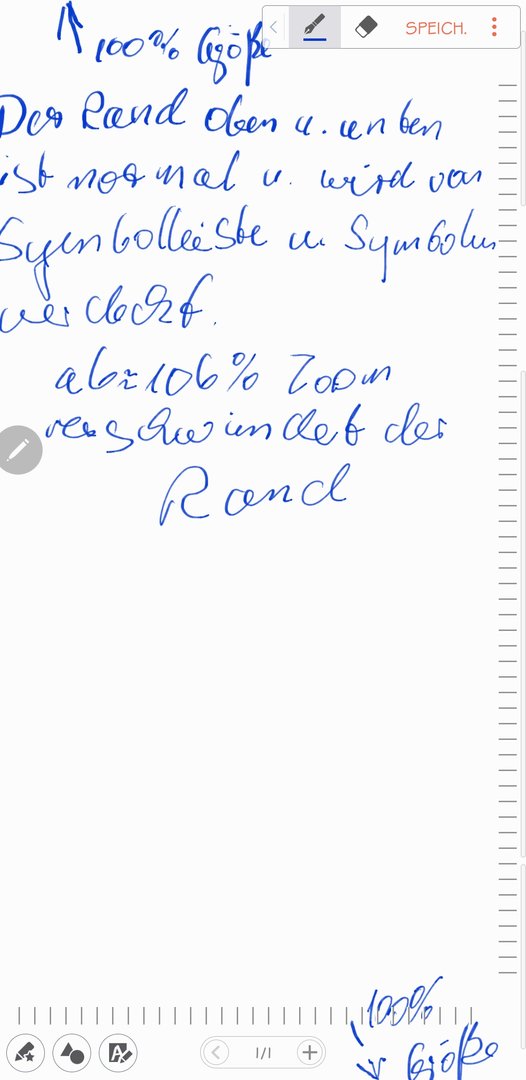 100% Größe
SPEICH.
Der Rand oben u. unten
ist normal u. wird von
Symbolleiste u. Symbolen
verdeckt.
ab ≈ 106% Zoom
verschwindet der
Rand
100%
Größe
1/1